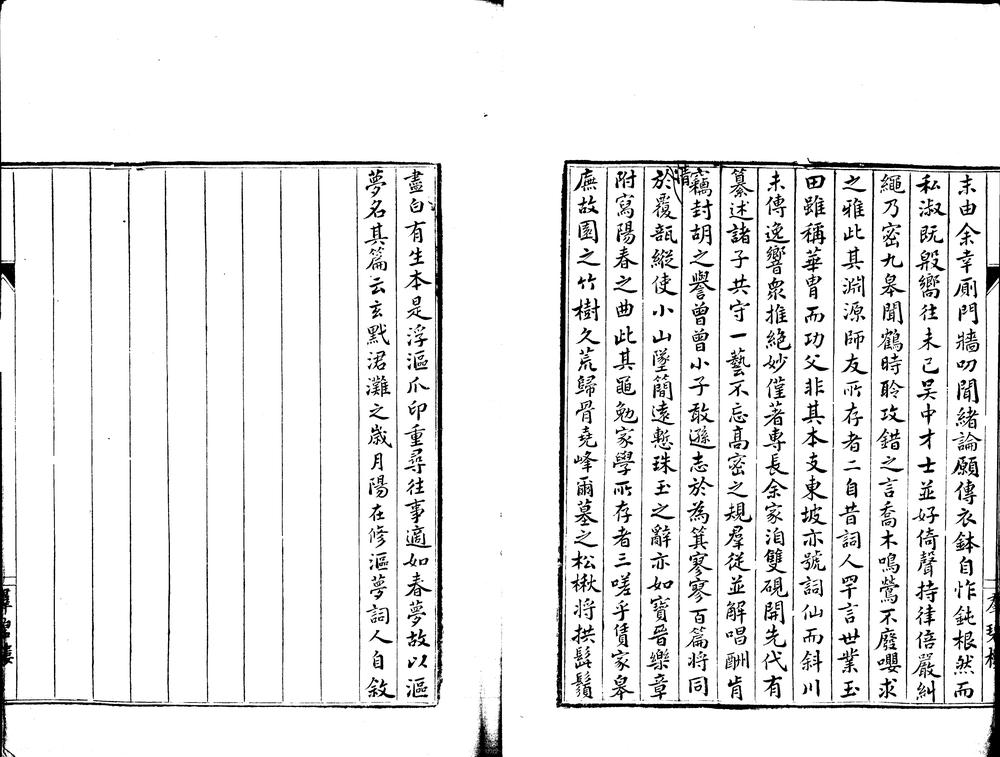 末由余幸厠門牆叨聞緒論願傳衣鉢自怍鈍根然而
私淑既殷嚮往未已吴中才士並好倚聲持律倍嚴糾
繩乃密九皋聞鶴時聆攻錯之言喬木鳴鶯不廢嚶求
之雅此其淵源師友所存者二自昔詞人罕言世業玉
田雖稱華胄而功父非其本支東坡亦號詞仙而斜川
未傳逸響衆推絶妙僅著專長余家洎雙硯開先代有
纂述諸子共守一藝不忘高密之規羣從並解唱酬肯
竊封胡之譽曾曾小子敢遜志於為箕寥寥百篇將同
於覆瓿縱使小山墜簡遠慙珠玉之辭亦如寶晉樂章
附寫陽春之曲此其黽勉家學所存者三嗟乎賃家皋
廡故園之竹樹久荒歸骨堯峰爾墓之松楸將拱髭鬚
盡白有生本是浮漚爪印重尋往事適如春夢故以漚
夢名其篇云玄黓涒灘之歲月陽在修漚夢詞人自敘